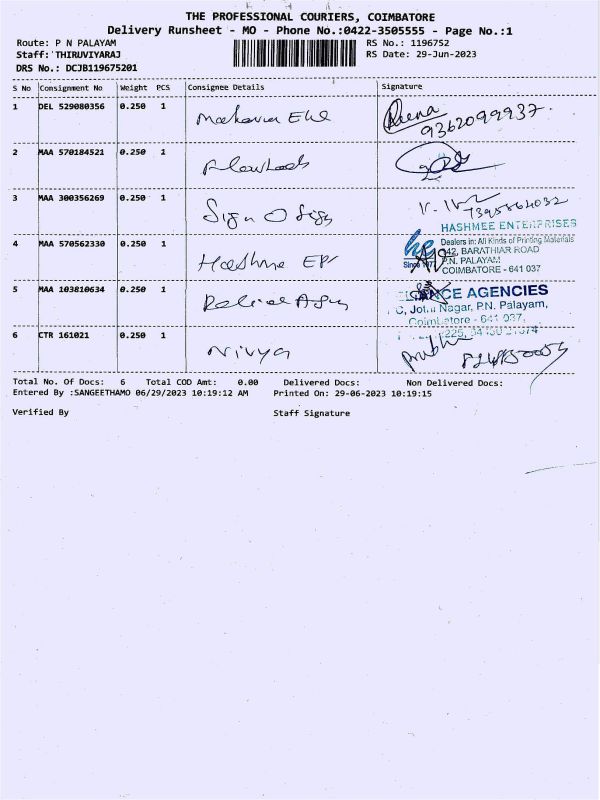 THE PROFESSIONAL COURIERS, COIMBATORE
Delivery Runsheet - MO - Phone No.:0422-3505555 - Page No.:1
Route: P N PALAYAM RS No.: 1196752
Staff: THIRUVIYARAJ RS Date: 29-Jun-2023
DRS No.: DCJB119675201
S No Consignment No Weight PCS Consignee Details Signature
1 DEL 529080356 0.250 1
9362099937
2 MAA 570184521 0.250 1
3 MAA 300356269 0.250 1 Sign O Sign
7395864032
HASHMEE ENTERPRISES
4 MAA 570562330 0.250 1 Hashme EPr
Dealers in: All Kinds of Printing Materials
42, BARATHIAR ROAD
Since P.N. PALAYAM
COIMBATORE - 641 037
5 MAA 103810634 0.250 1
AGENCIES
Nagar, P.N. Palayam,
Coimbatore - 641 037,
6 CTR 161021 0.250 1 Nivya
Total No. Of Docs: 6 Total COD Amt: 0.00 Delivered Docs: Non Delivered Docs:
Entered By :SANGEETHAMO 06/29/2023 10:19:12 AM Printed On: 29-06-2023 10:19:15
Verified By Staff Signature